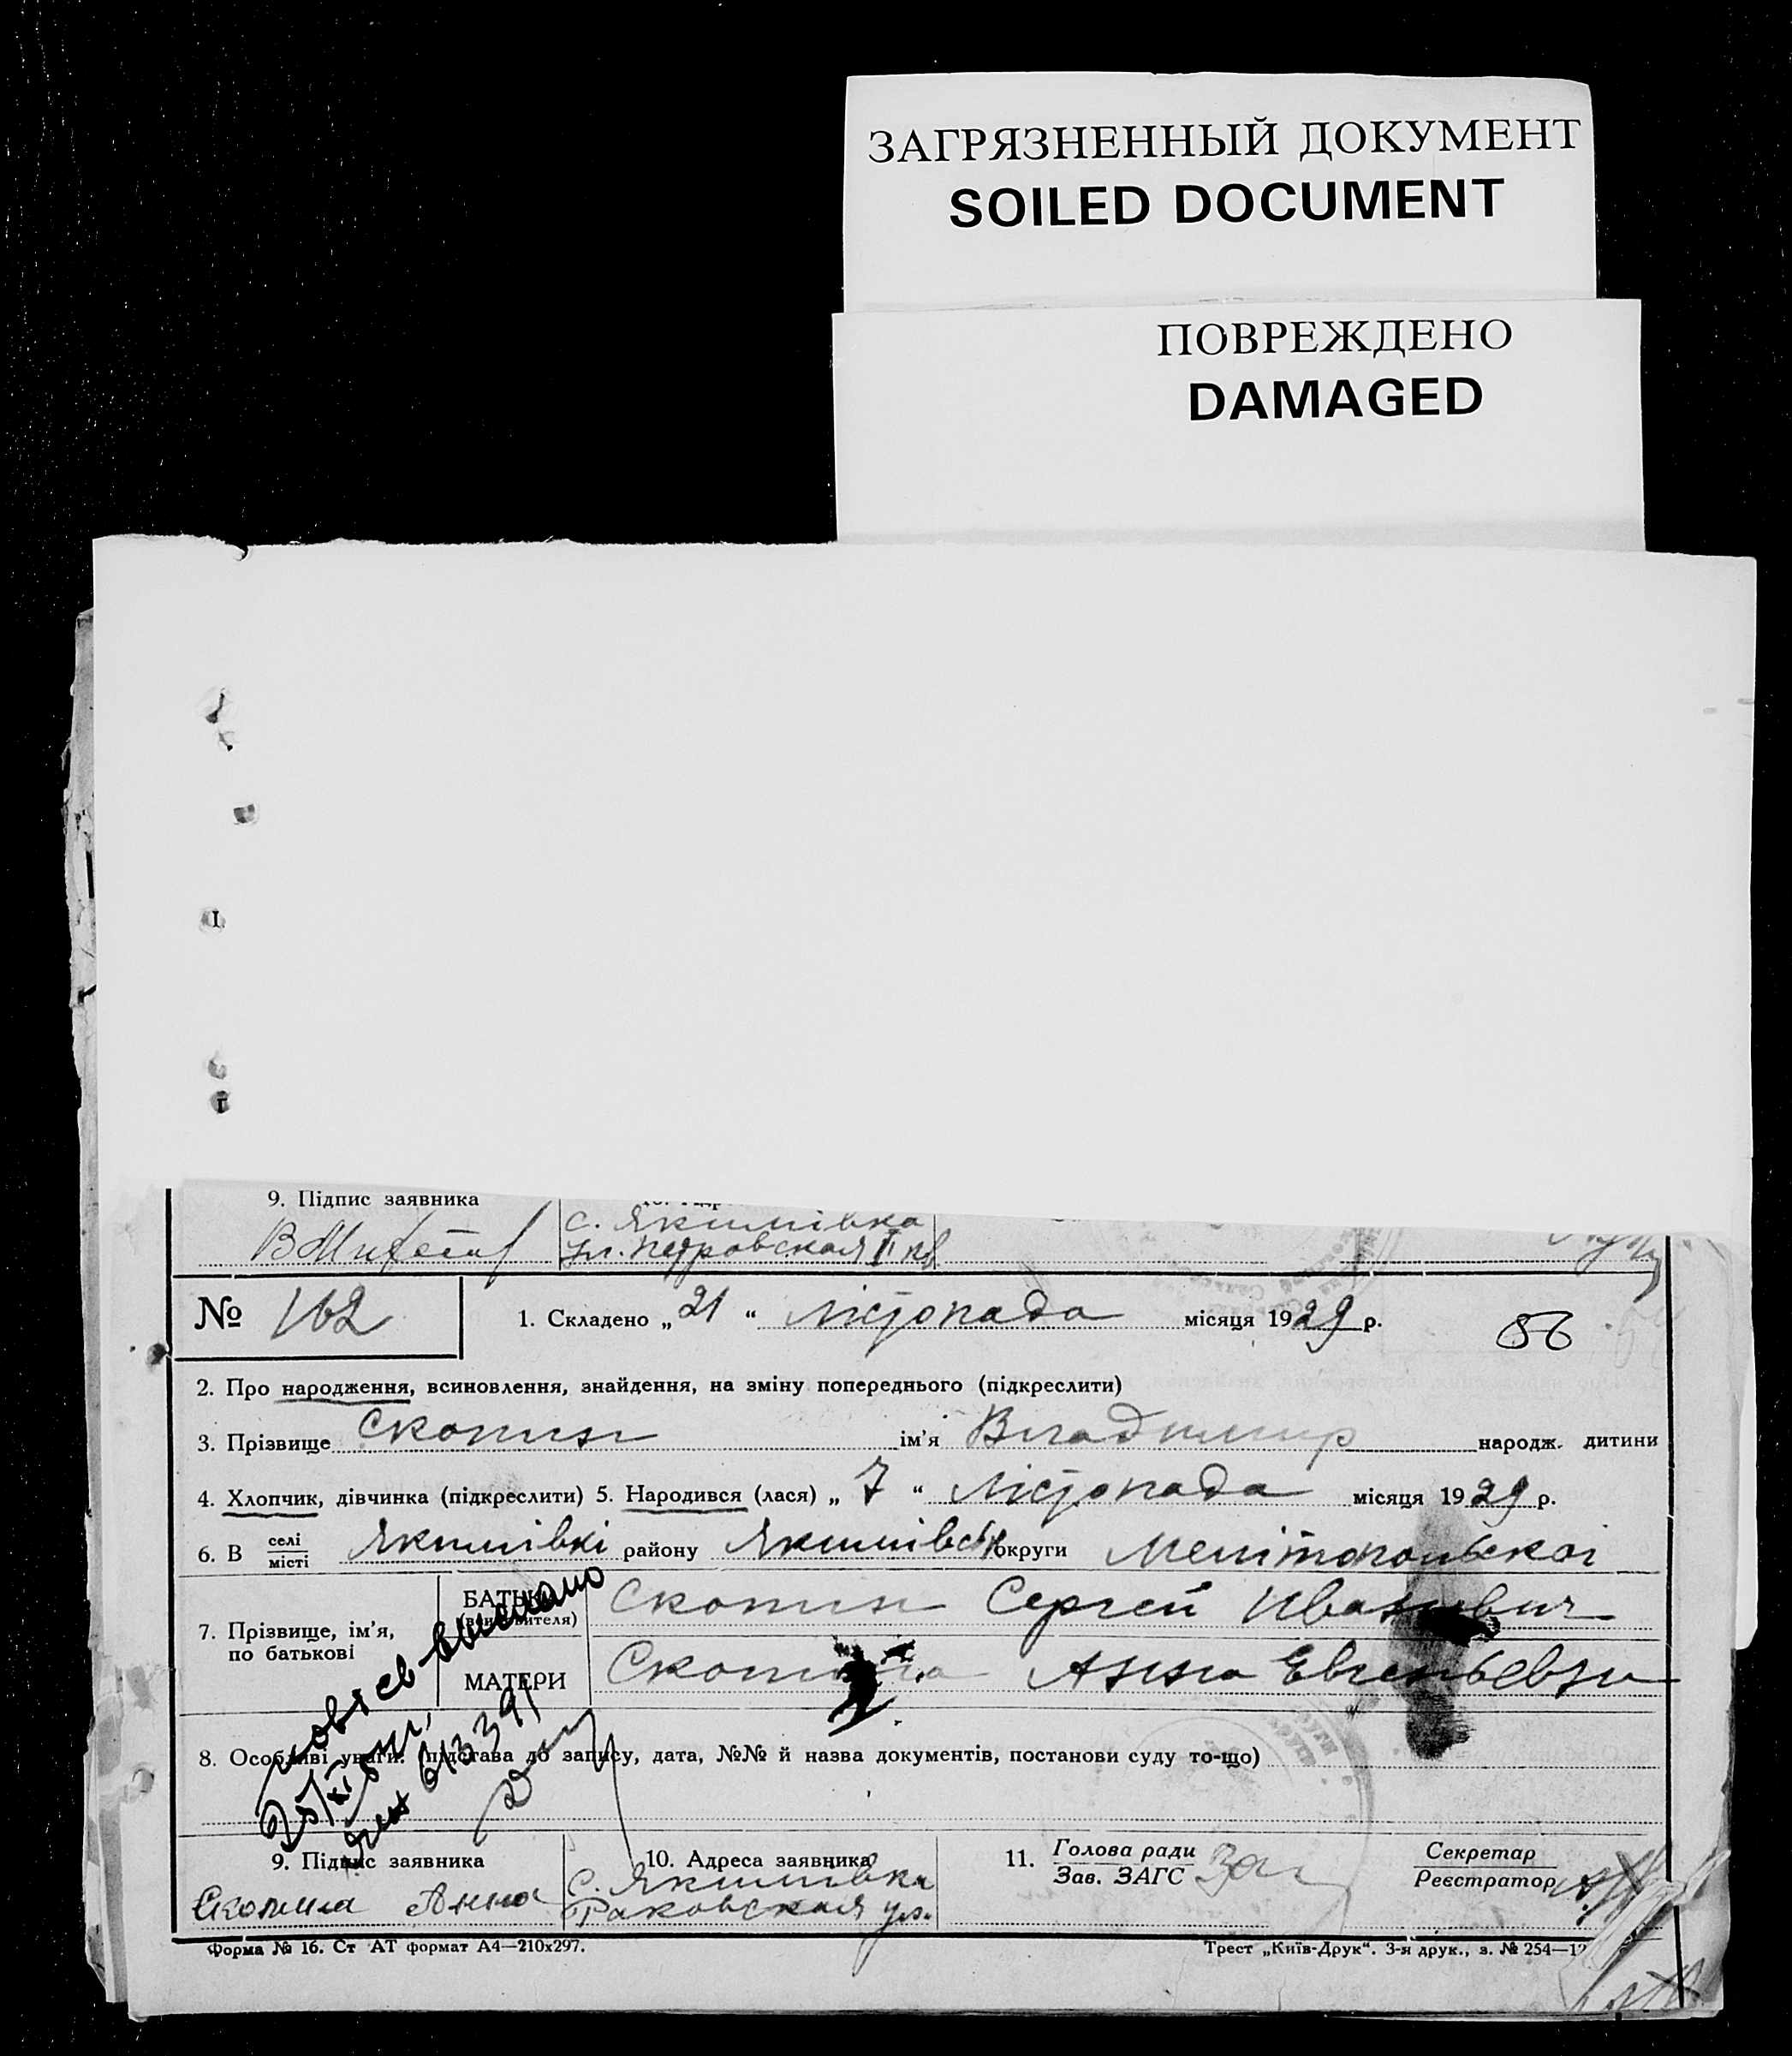 ЗАГРЯЗНЕННЫЙ ДОКУМЕНТ
SOILED DOCUMENT
ПОВРЕЖДЕНО
DAMAGED
9. Підпис заявника
с. Якимівка
ул. Петровская II кв.
№ 162
1. Складено „ 21 “ лістопада місяця 1929 р.
86
2. Про народження, всиновлення, знайдення, на зміну попереднього (підкреслити)
3. Прізвище Скопин ім'я Владимир народж. дитини
4. Хлопчик, дівчинка (підкреслити) 5. Народився (лася) „ 7 “ Лістопада місяця 1929 р.
6. В селі місті Якимівкі району Якимівськ округи Мелітопольскоі
7. Прізвище, ім'я, по батькові
БАТЬКА (всиновителя) Скопин Сергей Иванович
МАТЕРИ Скопина Анна Евгеньевна
8. Особливі уваги: (підстава до запису, дата, №№ й назва документів, постанови суду то-що)
9. Підпис заявника
Скопина Анна
10. Адреса заявника
с. Якимівка
Раковская ул.
11. Голова ради
Зав. ЗАГС
Секретар
Реєстратор
Форма № 16. Ст АТ формат А4—210х297.
Трест „Київ-Друк“. 3-я друк., з. № 254—12